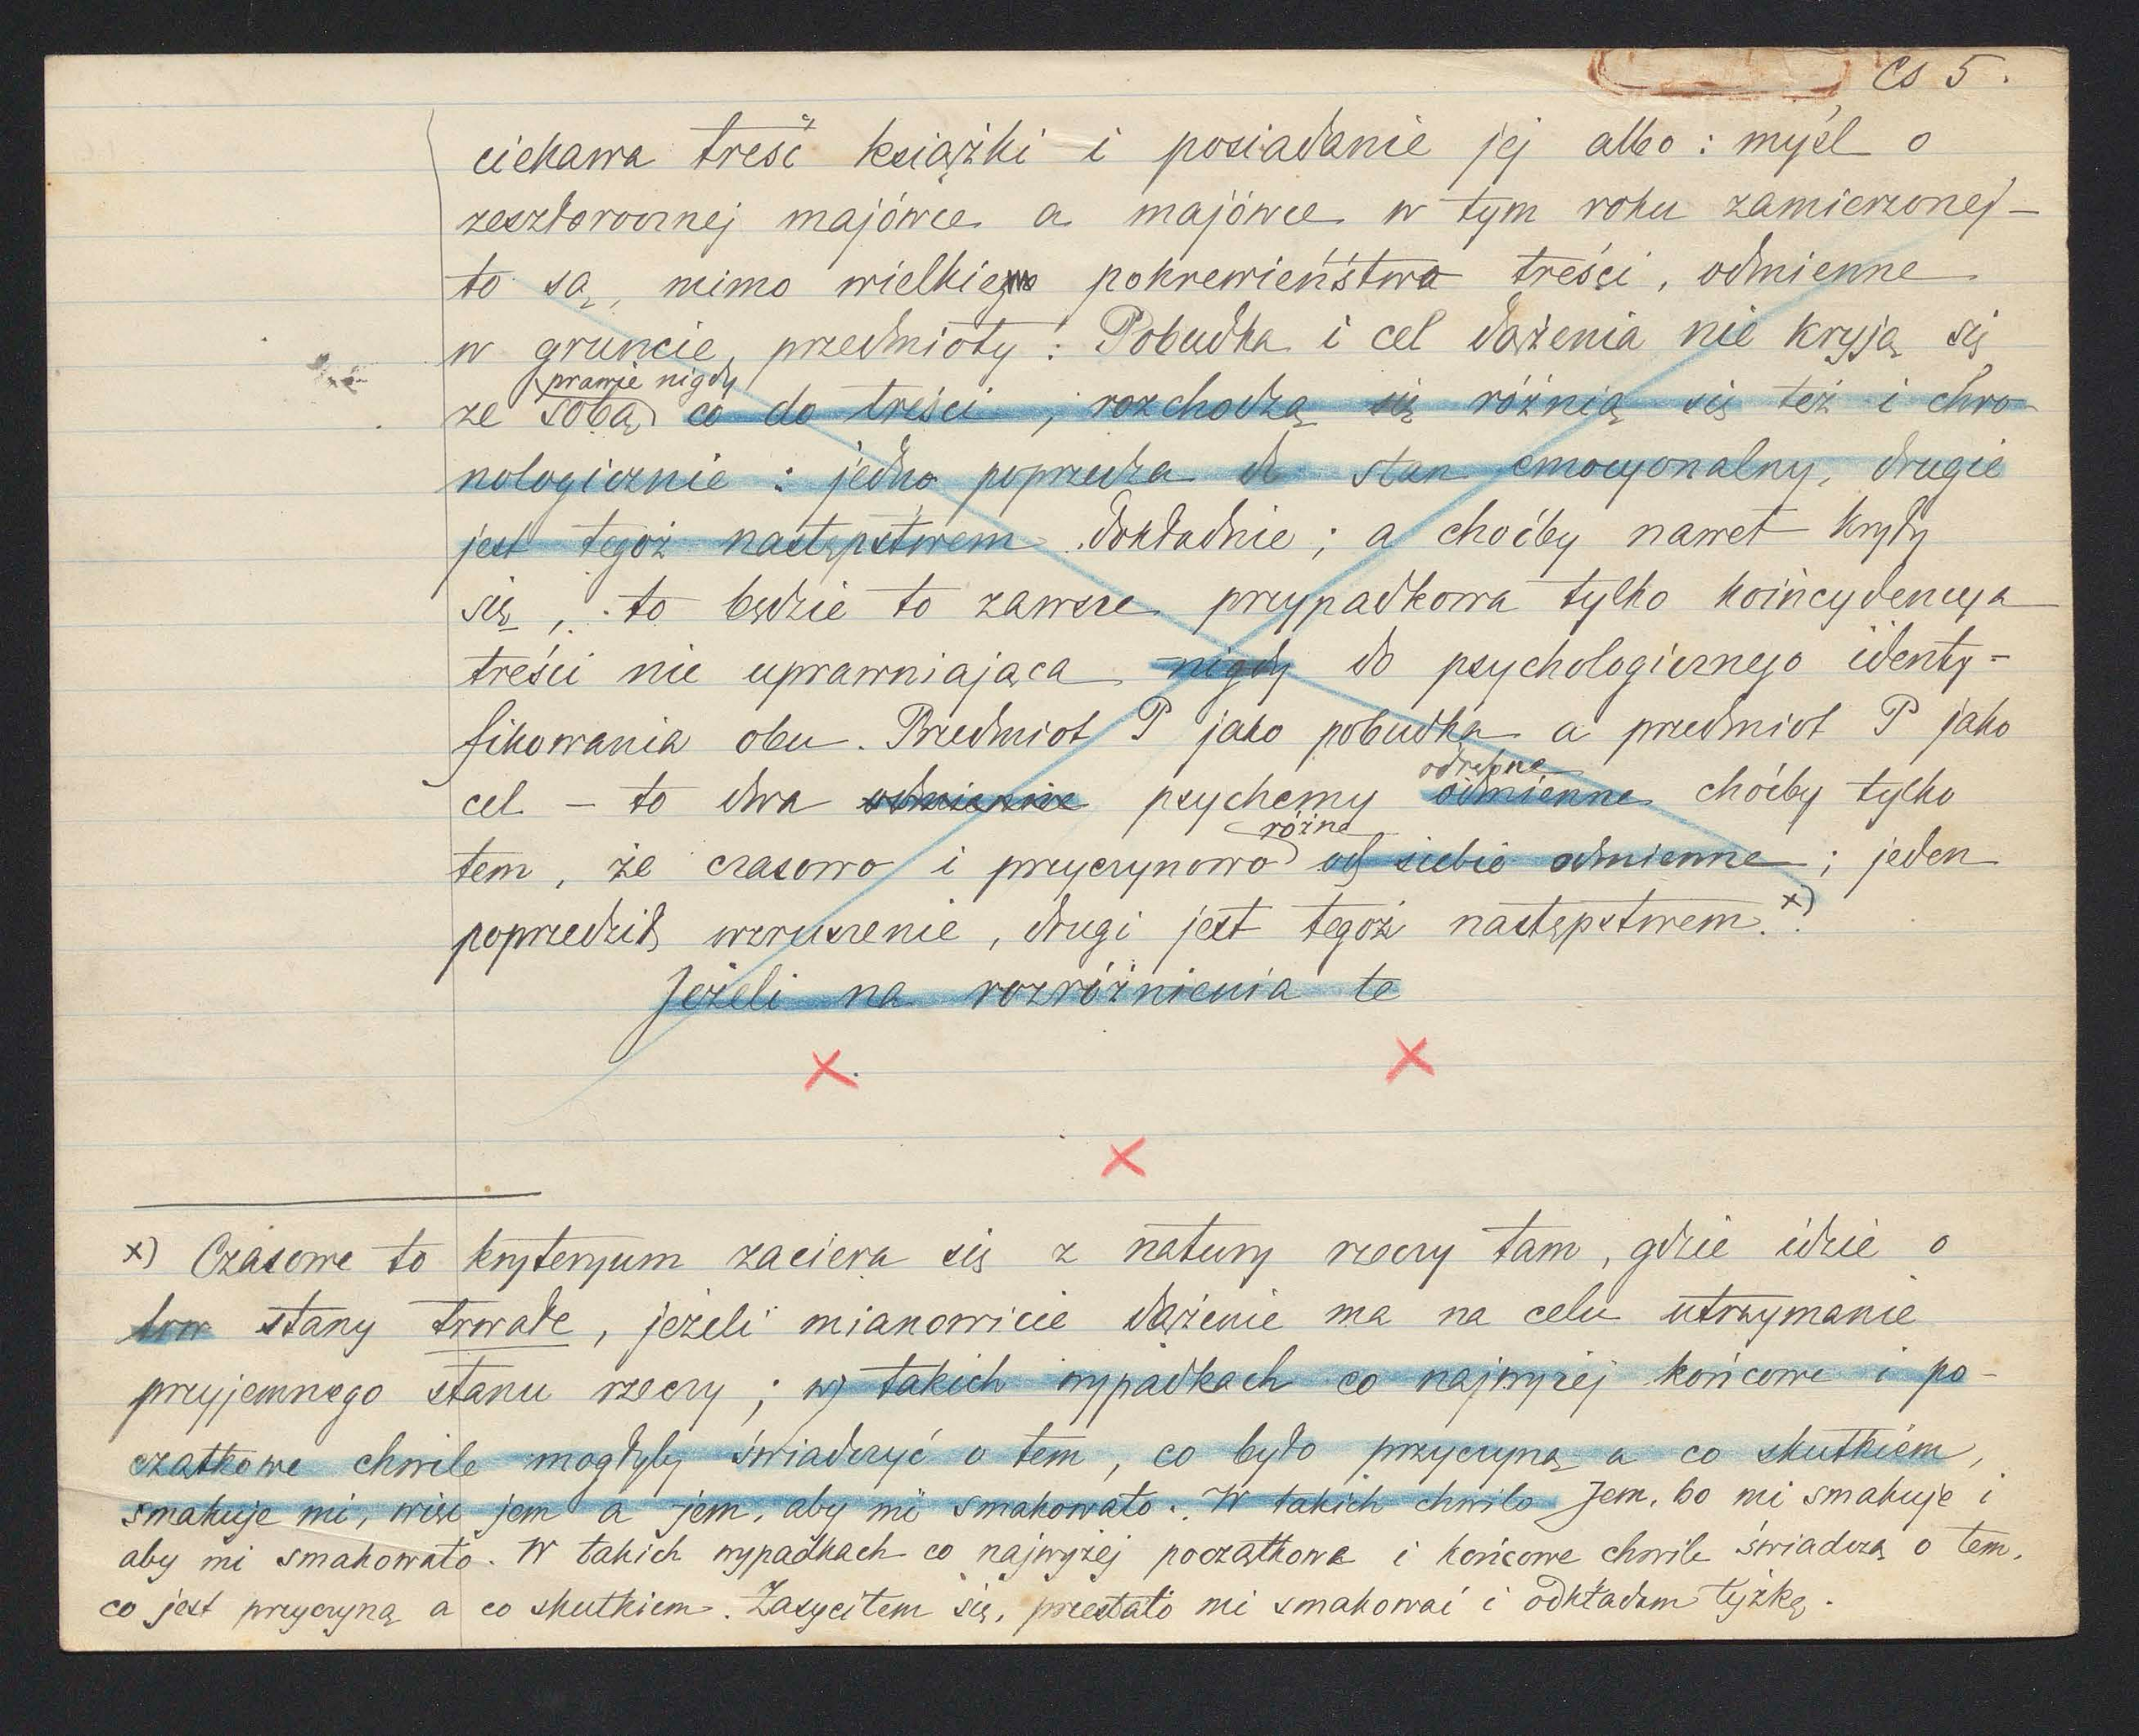 Cs 5.
ciekawa treść książki i posiadanie jej albo: myśl o
zeszłorocznej majówce a majówce w tym roku zamierzonej –
to są, mimo wielkiego pokrewieństwa treści, odmienne
w gruncie, przedmioty: Pobudka i cel dążenia nie kryją się
prawie nigdy
ze sobą co do treści, rozchodzą się różnią się też i chro
nologicznie: jedno poprzedza stan emocyonalny, drugie
jest tegoż następstwem dokładnie; a choćby nawet kryły
się, to będzie to zawsze przypadkowa tylko koincydencya
treści nie uprawniająca nigdy do psychologicznego identy=
fikowania obu. Przedmiot P jako pobudka a przedmiot P jako
odrębne
cel – to dwa odmienne psychemy odmienne choćby tylko
różne
tem, że czasowo i przyczynowo od siebie odmienne; jeden
poprzedził wzruszenie, drugi jest tegoż następstwem. x)
Jeżeli na rozróżnienia te
x x
x
x) Czasowe to kryteryum zaciera się z natury rzeczy tam, gdzie idzie o
trw stany trwałe, jeżeli mianowicie dążenie ma na celu utrzymanie
przyjemnego stanu rzeczy; w takich wypadkach co najwyżej końcowe i po-
czątkowe chwile mogłyby świadczyć o tem, co było przyczyną a co skutkiem,
smakuje mi, więc jem a jem, aby mi smakowało. W takich chwilo Jem, bo mi smakuje i
aby mi smakowało. W takich wypadkach co najwyżej początkowe i końcowe chwile świadczą o tem,
co jest przyczyną a co skutkiem. Zasyciłem się, przestało mi smakować i odkładam łyżkę.